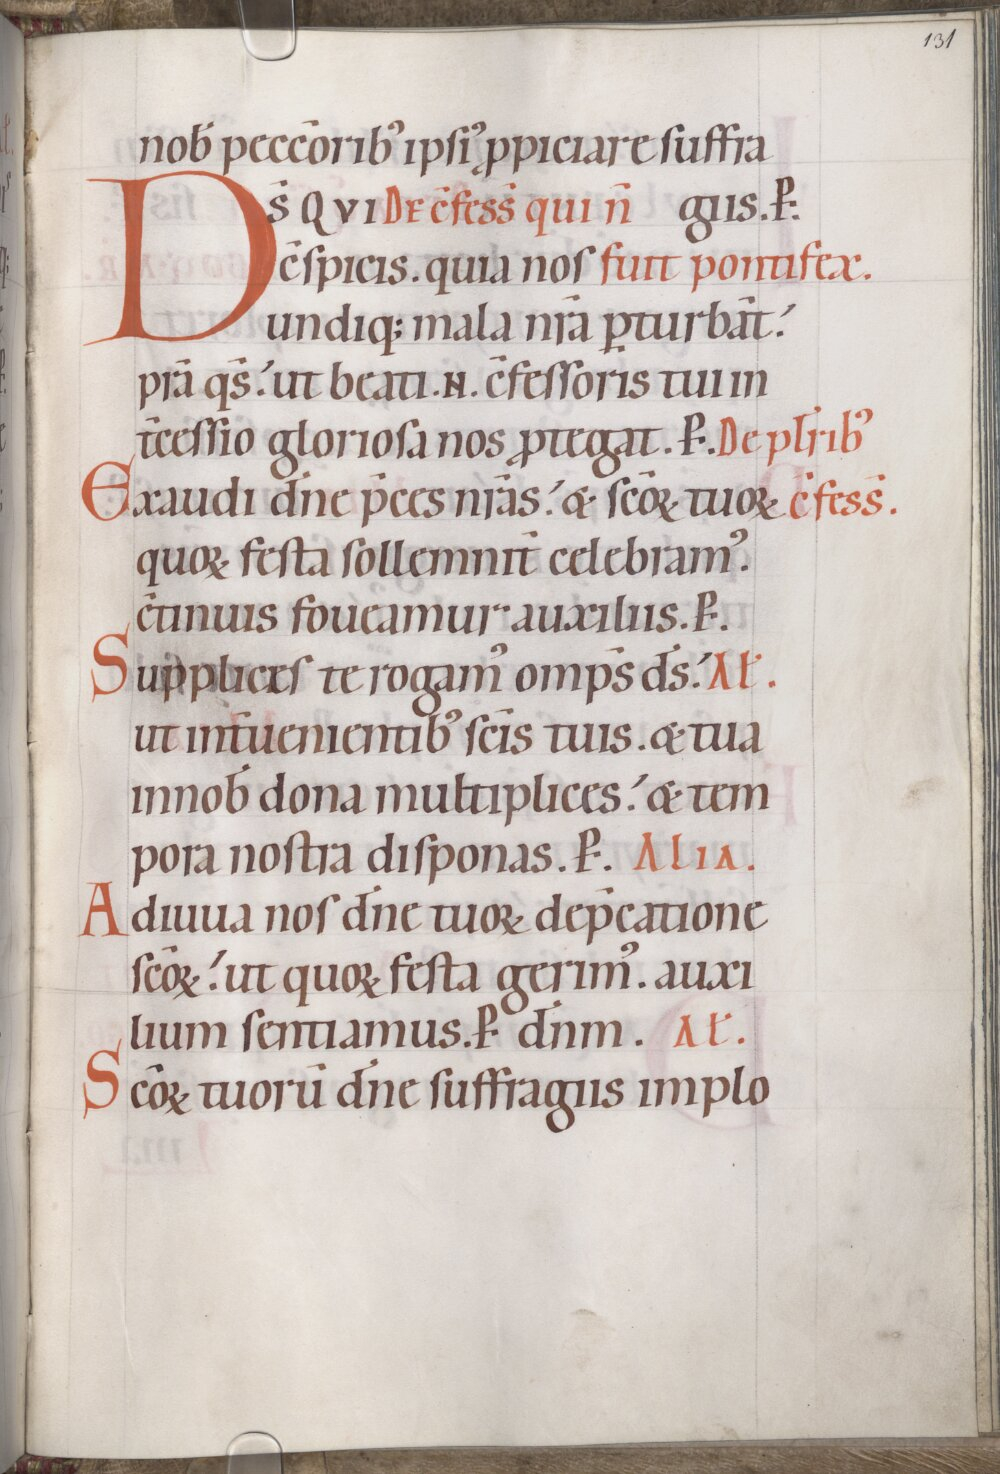 131
nob̄ pecc̄orib᾽ ipsi᾽ ꝓpiciare suffra
Ds̄ QVI De c̄fess̄ qui n̄ giis. P̶.
c̄spicis. quia nos fuit pontifex.
undiq; mala nr̄a ꝑturbāt!
pr̄a qs̄! ut beati .N. c̄fessoris tui in
t̄cessio gloriosa nos ꝓtegat. P̶. De pl̄rib᾽
Exaudi dn̄e p̄ces nr̄as! & sc̄oꝝ tuoꝝ c̄fess̄.
quoꝝ festa sollemnit̄ celebram᾽.
c̄tinuis foueamur auxiliis. P̶.
Supplices te rogam᾽ omp̄s ds̄! Al̵.
ut int̄uenientib᾽ sc̄is tuis. & tua
in nob̄ dona multiplices! & tem
pora nostra disponas. P̶. Alia.
Adiuua nos dn̄e tuoꝝ dep̄catione
sc̄oꝝ! ut quoꝝ festa gerim᾽. auxi
lium sentiamus. P̶ dn̄m. Al̵.
Sc̄oꝝ tuorū dn̄e suffragiis implo